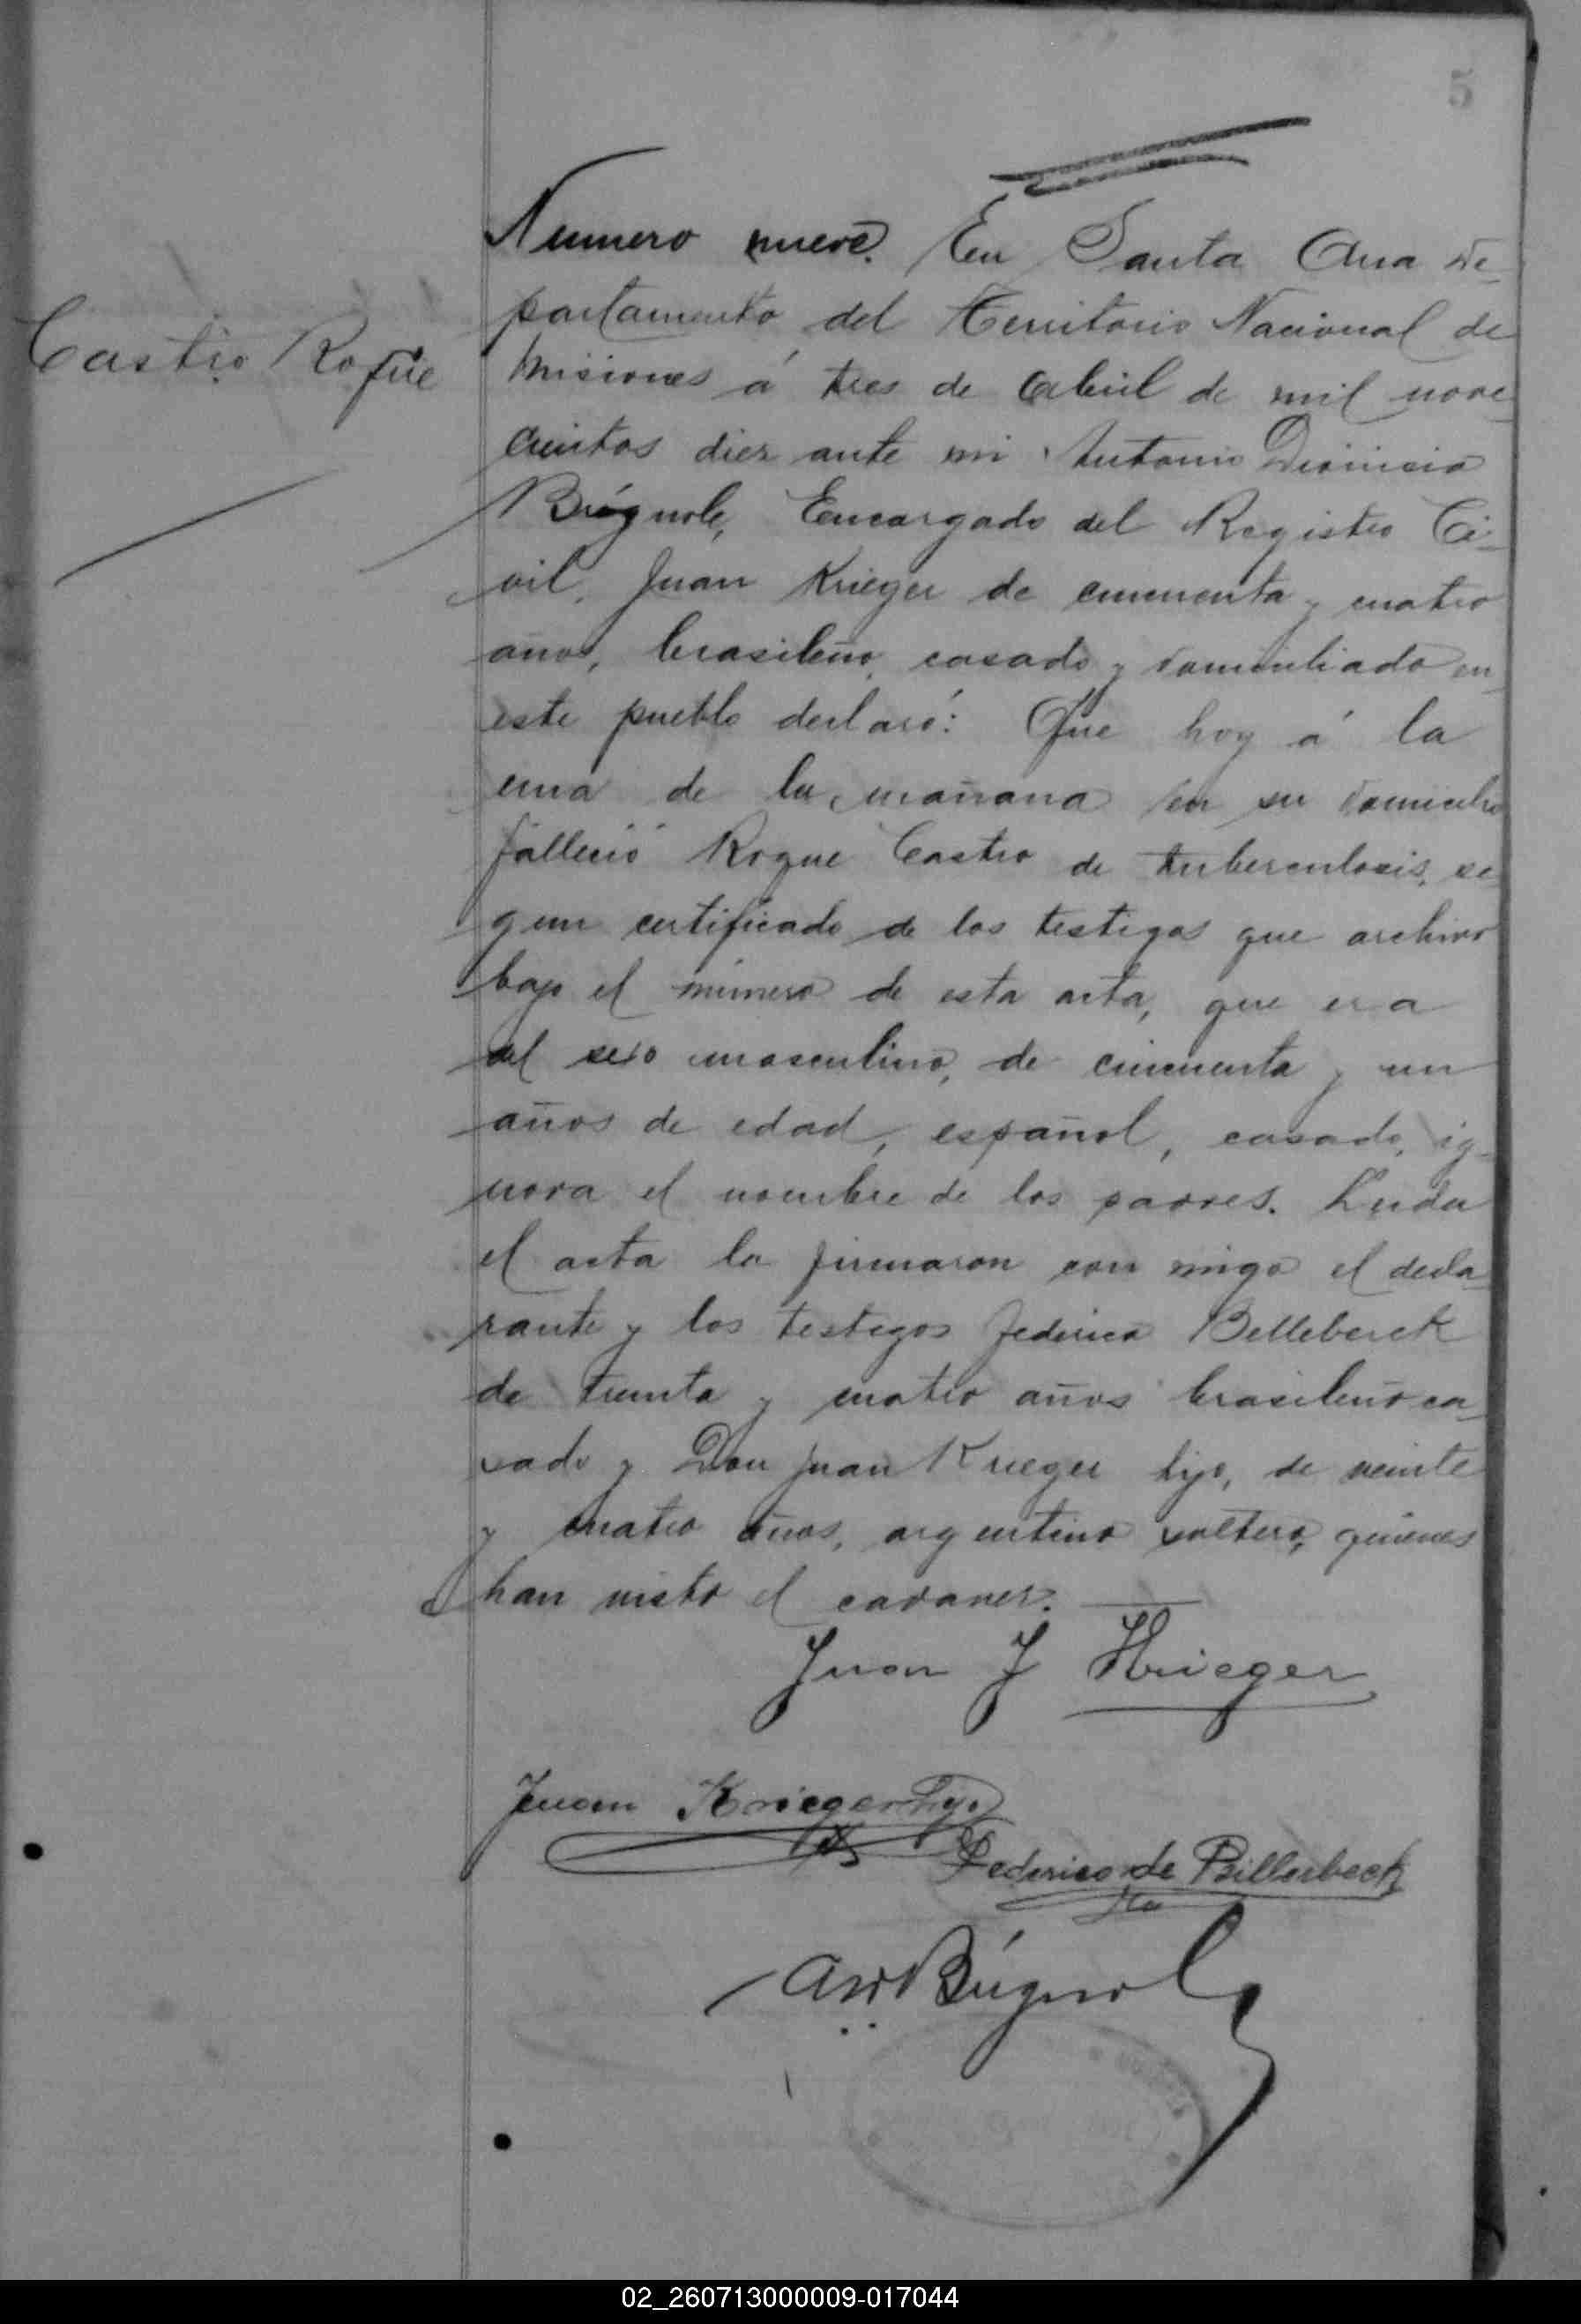 5
Castro Roque
Numero nueve. En Santa Ana De-
partamento del Territorio Nacional de
Misiones á tres de Abril de mil nove-
cientos diez ante mi Antonio Dionisio
Búgnole, Encargado del Registro Ci-
vil, Juan Krieger de cincuenta y cuatro
años, brasileño, casado y domiciliado en
este pueblo declaró: Que hoy á la
una de la mañana en su domicilio
falleció Roque Castro de tuberculosis, se-
gun certificado de los testigos que archivo
bajo el número de esta acta, que era
del sexo masculino, de cincuenta y un
años de edad, español, casado, ig-
nora el nombre de los padres. Leida
el acta la firmaron con migo el decla-
rante y los testigos Federico Belleberck
de treinta y cuatro años brasileño ca-
sado y Don Juan Krieger hijo, de veinte
y cuatro años, argentino soltero, quienes
han visto el cadaver.
Juan J Krieger
Juan Krieger hijo
Federico de Billerbeck
02_260713000009-017044